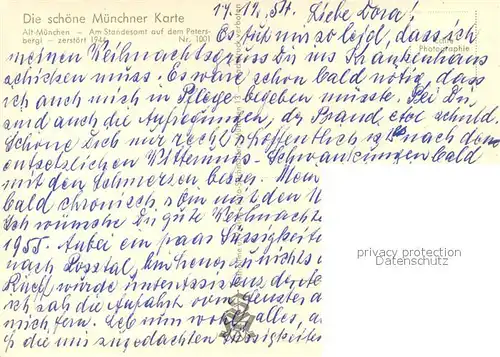 Die schöne Münchner Karte
Alt-München — Am Standesamt auf dem Peters-
bergl — zerstört 1944 Nr. 1001
Photographie
17.12.54. Liebe Dora!
Es tut mir so leid, dass ich
meinen Weihnachtsgruss Dir ins Krankenhaus
schicken muss. Es wäre schon bald nötig, dass
ich auch mich in Pflege begeben müsste. Bei Dir
sind auch die Aufregungen, der Brand etc. schuld.
Schone Dich nur recht, hoffentlich ist nach den
entsetzlichen Witterungs-Schwankungen bald
mit den Schmerzen besser. Mein
bald chronisch, bin mit den
Ich wünsche Dir gute Weihnachten
1955. Anbei ein paar Süssigkeiten
nach Rosstal, kam heuer zu nichts
ich sah die Auffahrt vom Fenster
mich fern. Leb nun wohl alles,
die mir zugedachten Süssigkeiten
privacy protection
DAMALS.DE